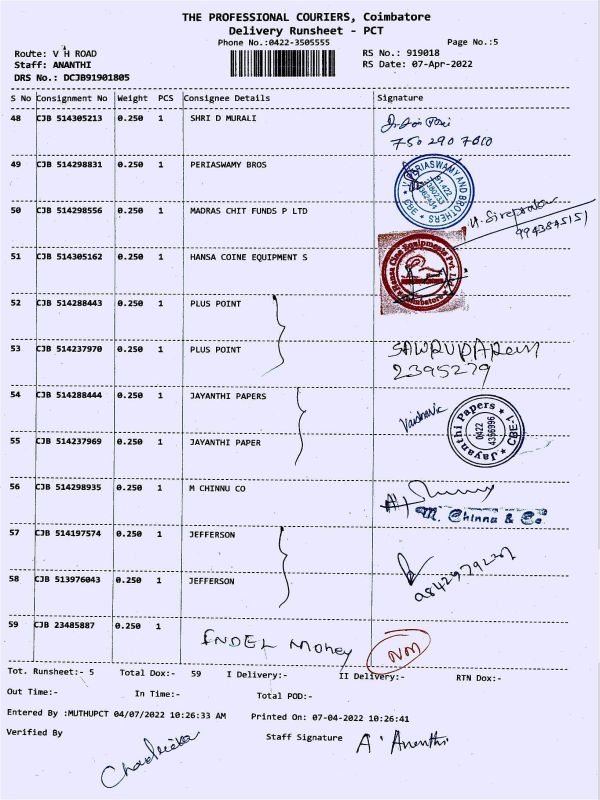 THE PROFESSIONAL COURIERS, Coimbatore
Delivery Runsheet - PCT
Phone No.:0422-3505555 Page No.:5
Route: V H ROAD RS No.: 919018
Staff: ANANTHI RS Date: 07-Apr-2022
DRS No.: DCJB91901805
S No Consignment No Weight PCS Consignee Details Signature
48 CJB 514305213 0.250 1 SHRI D MURALI
750 290 7000
49 CJB 514298831 0.250 1 PERIASWAMY BROS
50 CJB 514298556 0.250 1 MADRAS CHIT FUNDS P LTD
9943845151
51 CJB 514305162 0.250 1 HANSA COINE EQUIPMENT S
52 CJB 514288443 0.250 1 PLUS POINT
53 CJB 514237970 0.250 1 PLUS POINT
2395279
54 CJB 514288444 0.250 1 JAYANTHI PAPERS
Jayanthi Papers CBE-1
0422
4396996
55 CJB 514237969 0.250 1 JAYANTHI PAPER
56 CJB 514298935 0.250 1 M CHINNU CO
M. Chinna & Co
57 CJB 514197574 0.250 1 JEFFERSON
58 CJB 513976043 0.250 1 JEFFERSON
59 CJB 23485887 0.250 1
ENDEL Money NM
Tot. Runsheet:- 5 Total Dox:- 59 I Delivery:- II Delivery:- RTN Dox:-
Out Time:- In Time:- Total POD:-
Entered By :MUTHUPCT 04/07/2022 10:26:33 AM Printed On: 07-04-2022 10:26:41
Verified By Staff Signature A. Ananthi